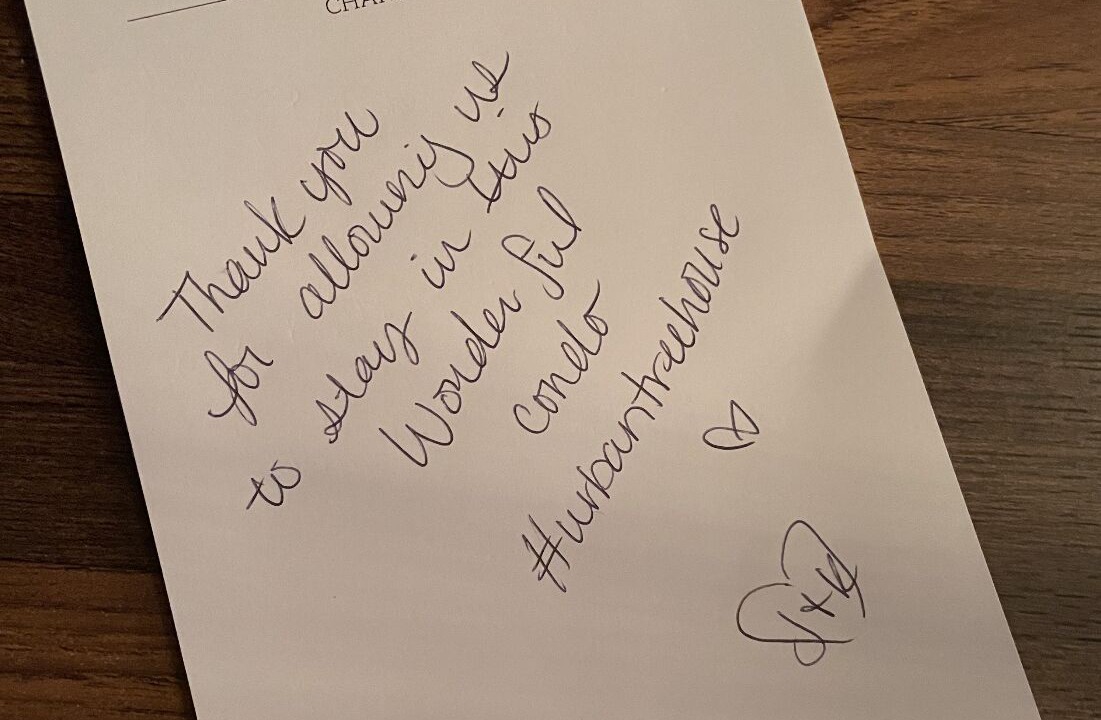 CHA
Thank you
for allowing us
to stay in this
Wonderful
condo
#urbantreehouse